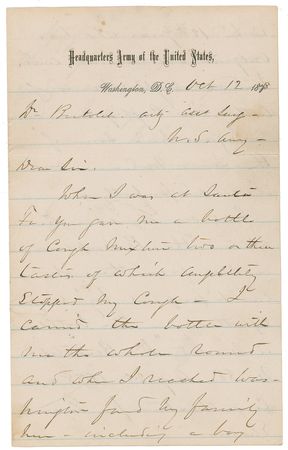 Headquarters Army of the United States,
Washington, D.C. Oct 12 1878
Dr Asst Surg -
U.S. Army -
Dear Sir.
When I was at Santa
Fe you gave me a bottle
of Cough Mixture two or three
tastes of which completely
stopped my Cough - I
carried the bottle with
me the whole round
and when I reached Was-
hington found my family
here - including a boy